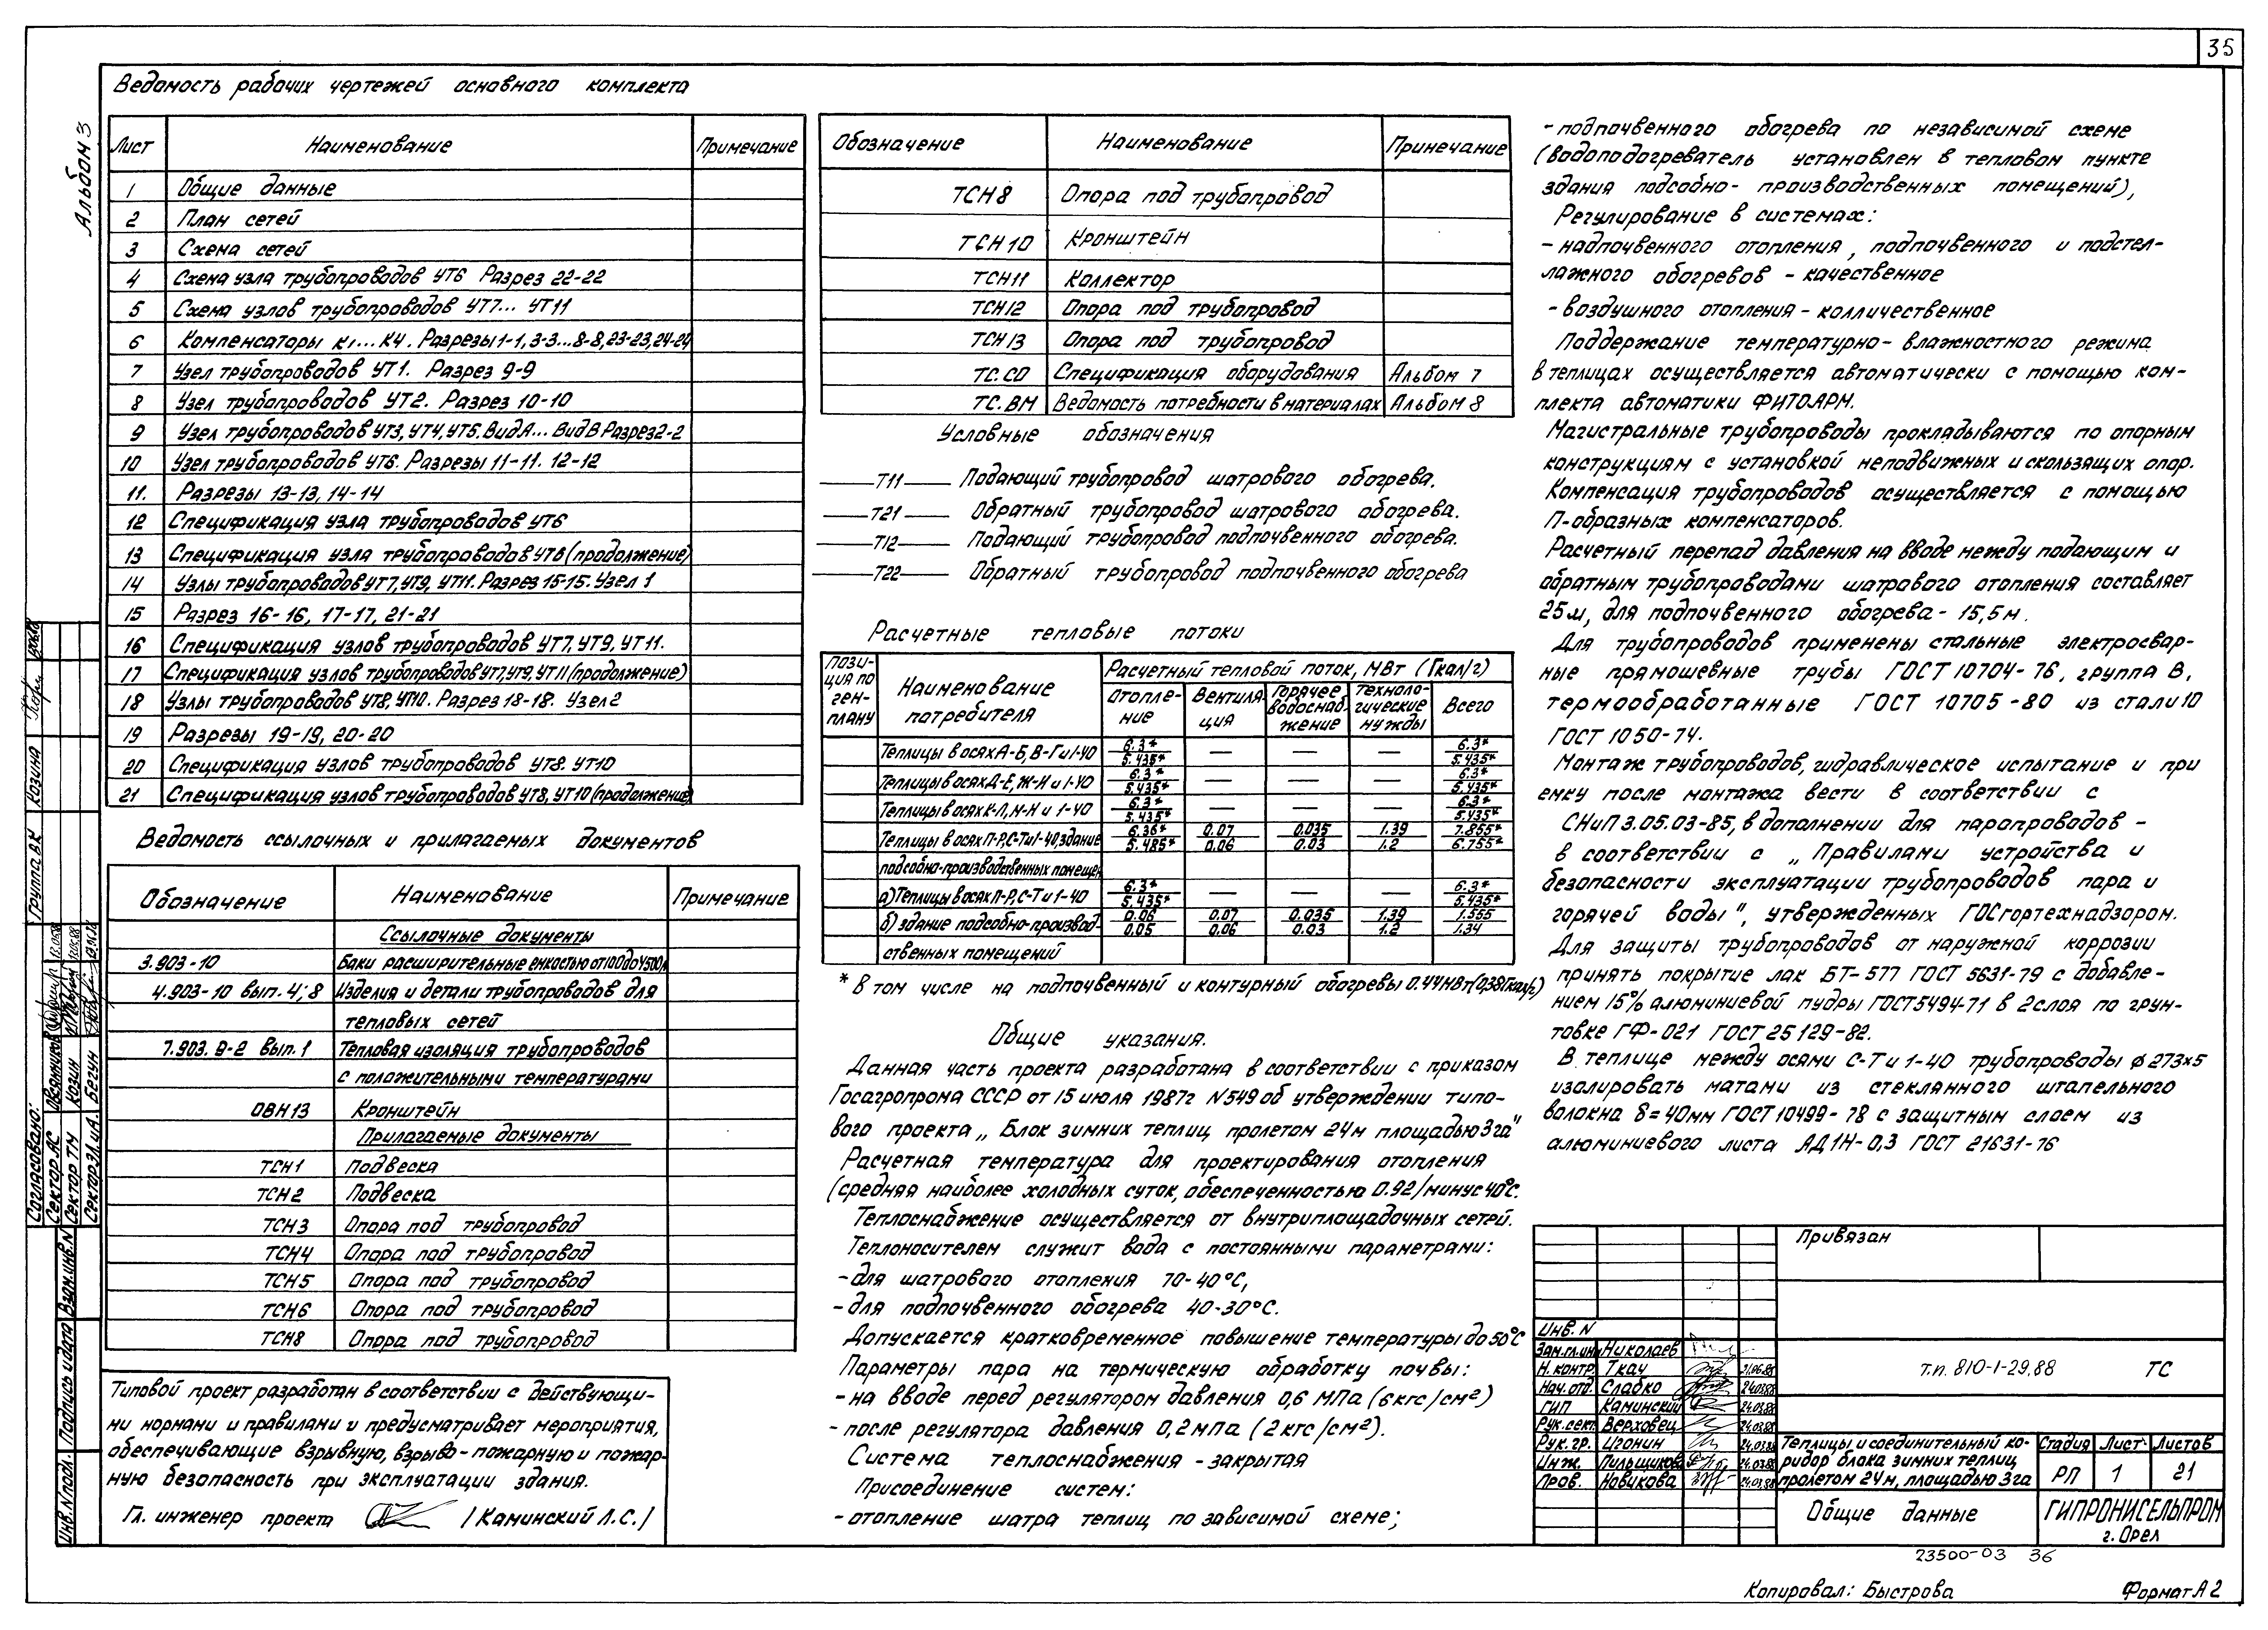 35
Альбом 3
Ведомость рабочих чертежей основного комплекта
Лист Наименование Примечание
1 Общие данные
2 План сетей
3 Схема сетей
4 Схема узла трубопроводов УТ6 Разрез 22-22
5 Схема узлов трубопроводов УТ7... УТ11
6 Компенсаторы К1...К4. Разрезы 1-1, 3-3...8-8, 23-23, 24-24
7 Узел трубопроводов УТ1. Разрез 9-9
8 Узел трубопроводов УТ2. Разрез 10-10
9 Узел трубопроводов УТ3, УТ4, УТ5. Вид А... Вид В Разрез 2-2
10 Узел трубопроводов УТ6. Разрезы 11-11. 12-12
11. Разрезы 13-13, 14-14
12 Спецификация узла трубопроводов УТ6
13 Спецификация узла трубопроводов УТ6 (продолжение)
14 Узлы трубопроводов УТ7, УТ9, УТ11. Разрез 15-15. Узел 1
15 Разрез 16-16, 17-17, 21-21
16 Спецификация узлов трубопроводов УТ7, УТ9, УТ11.
17 Спецификация узлов трубопроводов УТ7, УТ9, УТ11 (продолжение)
18 Узлы трубопроводов УТ8, УТ10. Разрез 18-18. Узел 2
19 Разрезы 19-19, 20-20
20 Спецификация узлов трубопроводов УТ8. УТ10
21 Спецификация узлов трубопроводов УТ8, УТ10 (продолжение)
Ведомость ссылочных и прилагаемых документов
Обозначение Наименование Примечание
Ссылочные документы
3.903-10 Баки расширительные емкостью от 100 до 4500л
4.903-10 вып. 4; 8 Изделия и детали трубопроводов для
тепловых сетей
7.903. 9-2 Вып. 1 Тепловая изоляция трубопроводов
с положительными температурами
ОВН13 Кронштейн
Прилагаемые документы
ТСН1 Подвеска
ТСН2 Подвеска
ТСН3 Опора под трубопровод
ТСН4 Опора под трубопровод
ТСН5 Опора под трубопровод
ТСН6 Опора под трубопровод
ТСН8 Опора под трубопровод
Типовой проект разработан в соответствии с действующи-
ми нормами и правилами и предусматривает мероприятия,
обеспечивающие взрывную, взрыво-пожарную и пожар-
ную безопасность при эксплуатации здания.
Гл. инженер проекта /Каминский Л.С./
Обозначение Наименование Примечание
ТСН8 Опора под трубопровод
ТСН10 Кронштейн
ТСН11 Коллектор
ТСН12 Опора под трубопровод
ТСН13 Опора под трубопровод
ТС.СО Спецификация оборудования Альбом 7
ТС.ВМ Ведомость потребности в материалах Альбом 8
Условные обозначения
Т11 Подающий трубопровод шатрового обогрева.
Т21 Обратный трубопровод шатрового обогрева.
Т12 Подающий трубопровод подпочвенного обогрева.
Т22 Обратный трубопровод подпочвенного обогрева
Расчетные тепловые потоки
Пози-
ция по
ген-
плану Наименование
потребителя Расчетный тепловой поток, МВт (Гкал/г)
Отопле-
ние Вентиля-
ция Горячее
водоснаб-
жение Техноло-
гические
нужды Всего
Теплицы в осях А-Б, В-Г и 1-40 6.3*/5.435* — — — 6.3*/5.435*
Теплицы в осях Д-Е, Ж-И и 1-40 6.3*/5.435* — — — 6.3*/5.435*
Теплицы в осях К-Л, М-Н и 1-40 6.3*/5.435* — — — 6.3*/5.435*
Теплицы в осях П-Р, С-Т и 1-40, здание 6.36*/5.485* 0.07/0.06 0.035/0.03 1.39/1.2 7.855*/6.755*
подсобно-производственных помещен
а) Теплицы в осях П-Р, С-Т и 1-40 6.3*/5.435* — — — 6.3*/5.435*
б) здание подсобно-производ- 0.06/0.05 0.07/0.06 0.035/0.03 1.39/1.2 1.555/1.34
ственных помещений
* В том числе на подпочвенный и контурный обогревы 0.44МВт (0,38Гкал/г)
Общие указания.
Данная часть проекта разработана в соответствии с приказом
Госагропрома СССР от 15 июля 1987г N549 об утверждении типо-
вого проекта „Блок зимних теплиц пролетом 24м площадью 3га"
Расчетная температура для проектирования отопления
(средняя наиболее холодных суток, обеспеченностью 0.92/минус 40°С.
Теплоснабжение осуществляется от внутриплощадочных сетей.
Теплоносителем служит вода с постоянными параметрами:
-для шатрового отопления 70-40°С,
-для подпочвенного обогрева 40-30°С.
Допускается кратковременное повышение температуры до 50°С
Параметры пара на термическую обработку почвы:
-на вводе перед регулятором давления 0,6 МПа (6кгс/см²)
-после регулятора давления 0,2 мпа (2 кгс/см²).
Система теплоснабжения - закрытая
Присоединение систем:
-отопление шатра теплиц по зависимой схеме;
-подпочвенного обогрева по независимой схеме
(водоподогреватель установлен в тепловом пункте
здания подсобно-производственных помещений),
Регулирование в системах:
-надпочвенного отопления, подпочвенного и подстел-
лажного обогревов - качественное
-воздушного отопления - колличественное
Поддержание температурно-влажностного режима
в теплицах осуществляется автоматически с помощью ком-
плекта автоматики ФИТОАРМ.
Магистральные трубопроводы прокладываются по опорным
конструкциям с установкой неподвижных и скользящих опор.
Компенсация трубопроводов осуществляется с помощью
П-образных компенсаторов.
Расчетный перепад давления на вводе между подающим и
обратным трубопроводами шатрового отопления составляет
25м, для подпочвенного обогрева - 15,5м.
Для трубопроводов применены стальные электросвар-
ные прямошевные трубы ГОСТ 10704-76, группа В,
термообработанные ГОСТ 10705-80 из стали 10
ГОСТ 1050-74.
Монтаж трубопроводов, гидравлическое испытание и при
емку после монтажа вести в соответствии с
СНиП 3.05.03-85, в дополнении для паропроводов -
в соответствии с „Правилами устройства и
безопасности эксплуатации трубопроводов пара и
горячей воды", утвержденных ГОСгортехнадзором.
Для защиты трубопроводов от наружной коррозии
принять покрытие лак БТ-577 ГОСТ 5631-79 с добавле-
нием 15% алюминиевой пудры ГОСТ 5494-71 в 2 слоя по грун-
товке ГФ-021 ГОСТ 25129-82.
В теплице между осями С-Т и 1-40 трубопроводы ø 273х5
изолировать матами из стеклянного штапельного
волокна δ=40мм ГОСТ 10499-78 с защитным слоем из
алюминиевого листа АД1Н-0,3 ГОСТ 21631-76
Привязан
Инв. N
Зам.гл.инж Николаев
Н. контр. Ткач 21.06.88
Нач. отд. Слабко 24.03.88
ГИП Каминский 24.03.88
Рук. сект. Верховец 24.03.88
Рук. гр. Игонин 24.03.88
Инж. Пильщикова 24.03.88
Пров. Новикова 24.03.88
т.п. 810-1-29.88 ТС
Теплицы и соединительный ко-
ридор блока зимних теплиц
пролетом 24м, площадью 3га
Стадия Лист Листов
РП 1 21
Общие данные
ГИПРОНИСЕЛЬПРОМ
г. Орел
23500-03 36
Копировал: Быстрова Формат А2
Согласовано:
Сектор АС Овсянников
Сектор ТМ Козин
Сектор ЭЛ и А. Бегун
Группа ВК Козина
Инв. N подл. Подпись и дата Взам. инв. N